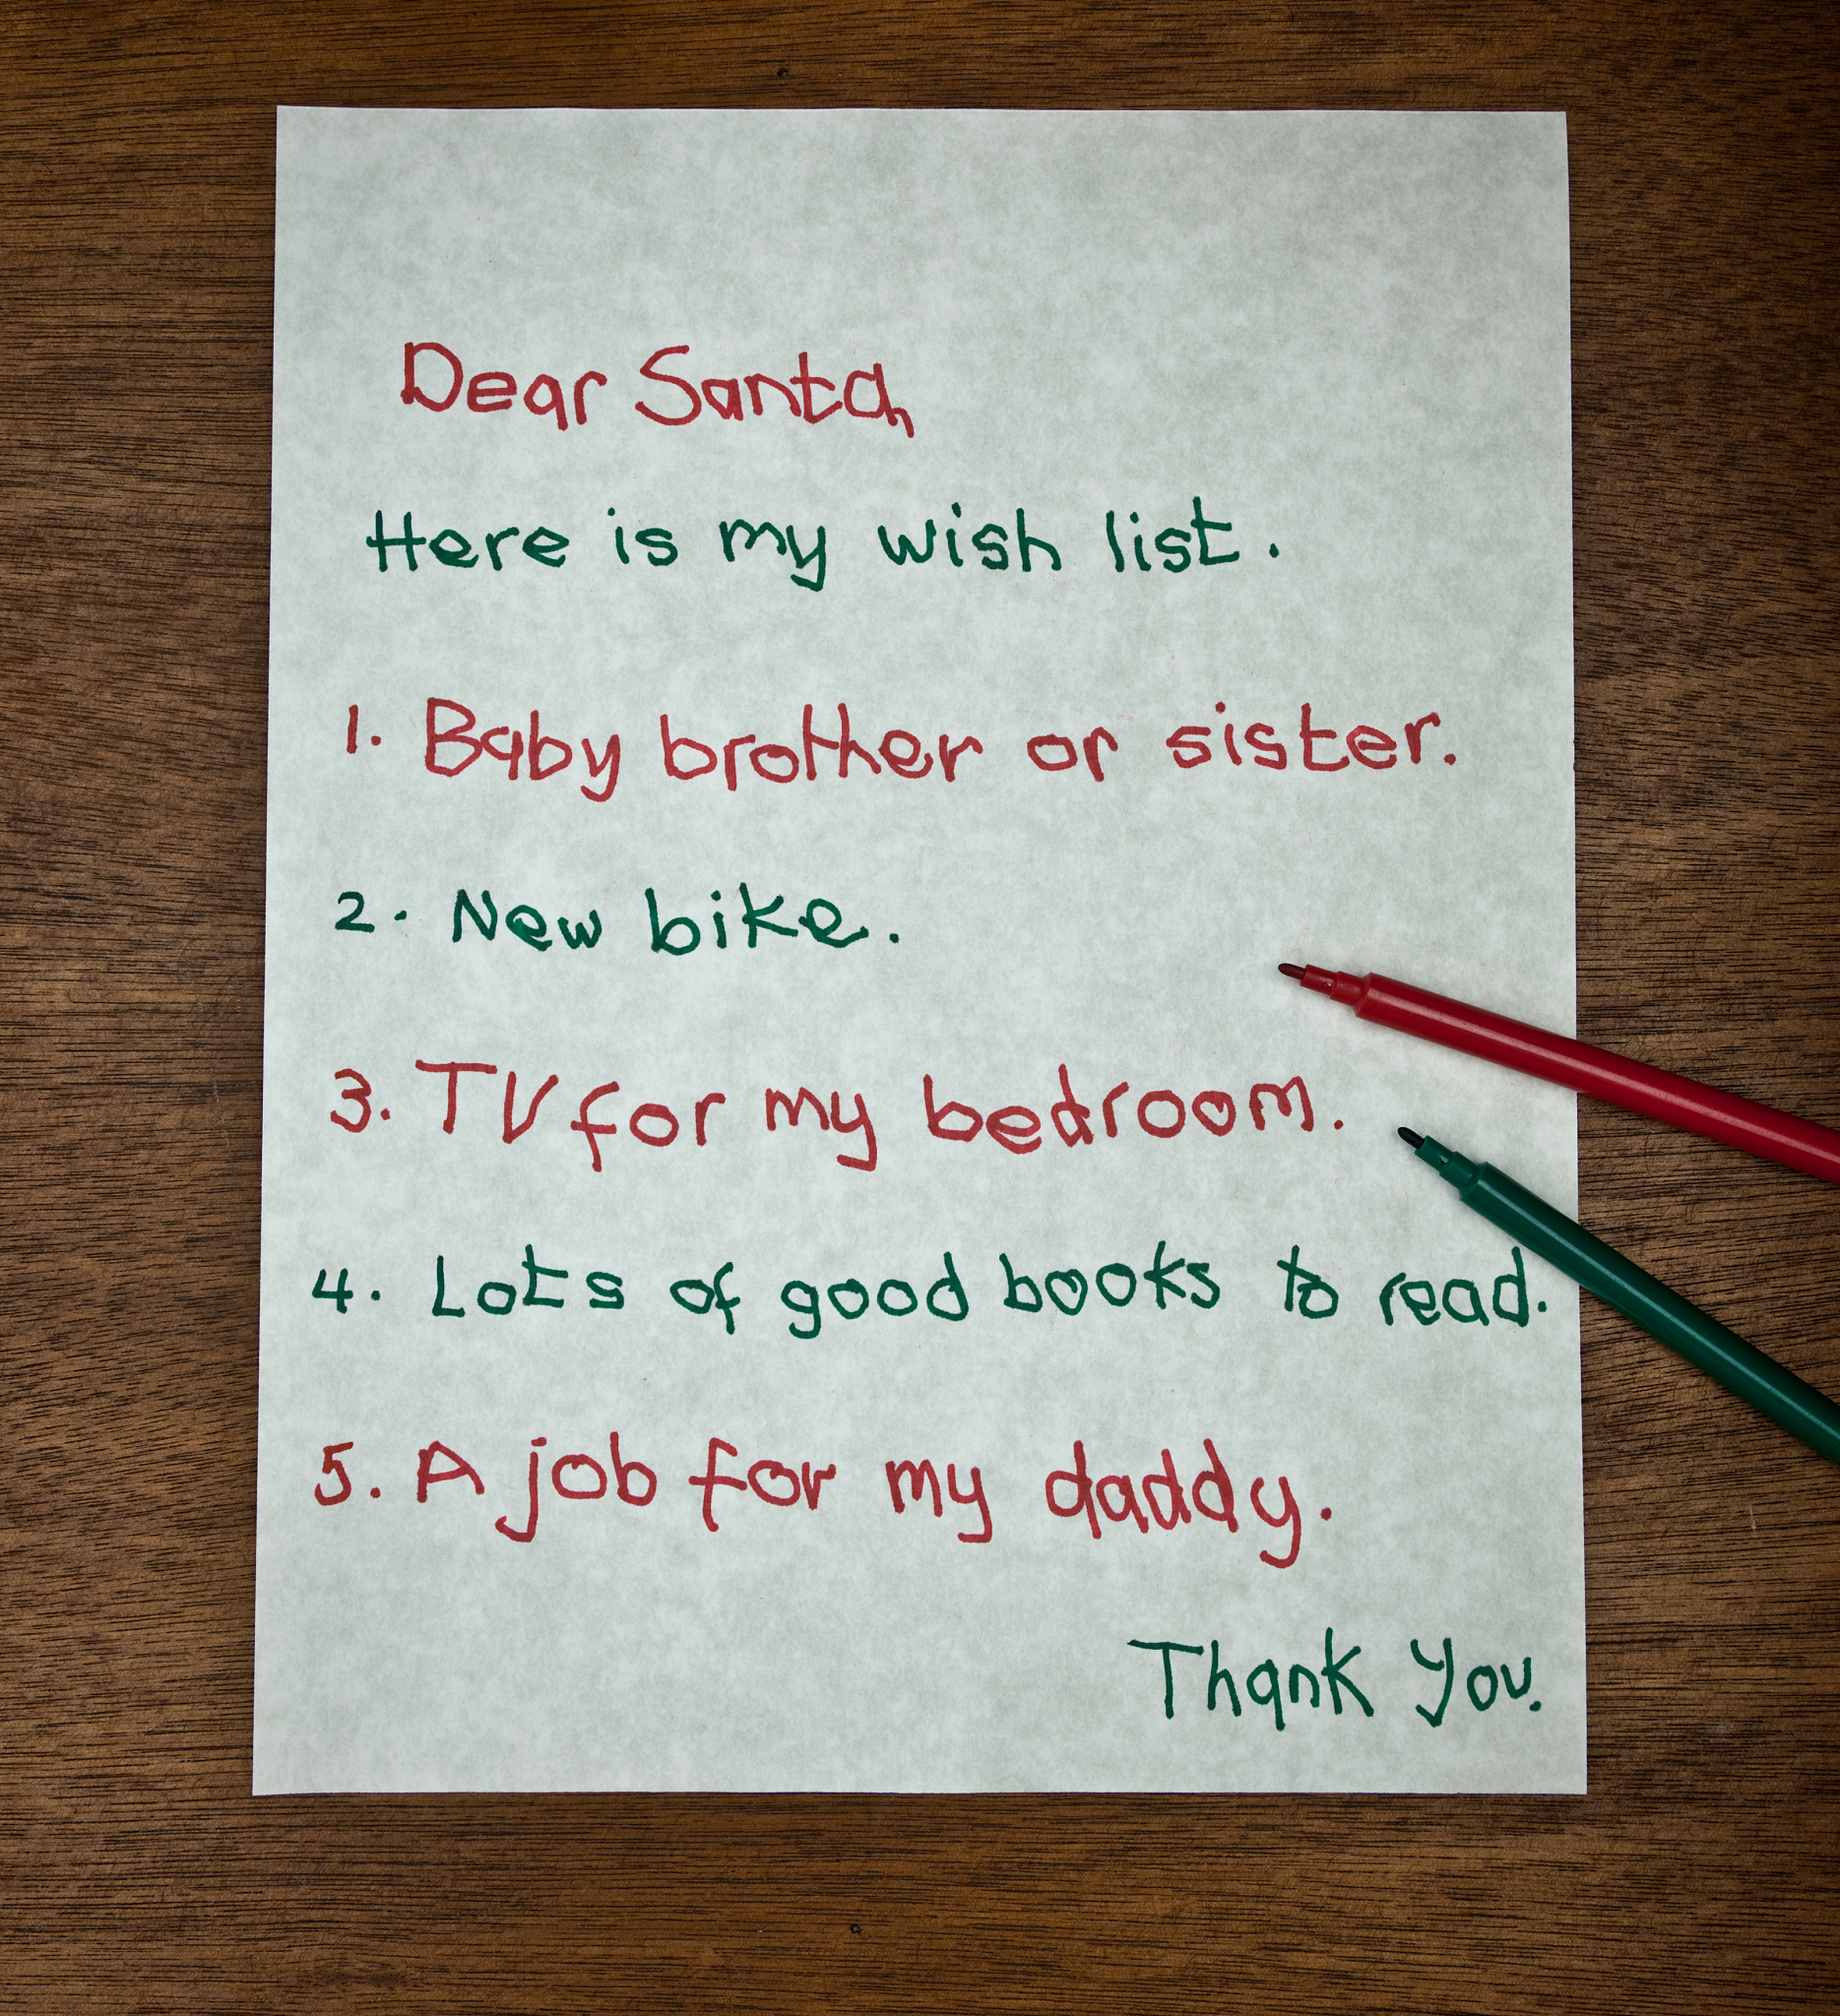 Dear Santa,
Here is my wish list.
1. Baby brother or sister.
2. New bike.
3. TV for my bedroom.
4. Lots of good books to read.
5. A job for my daddy.
Thank You.